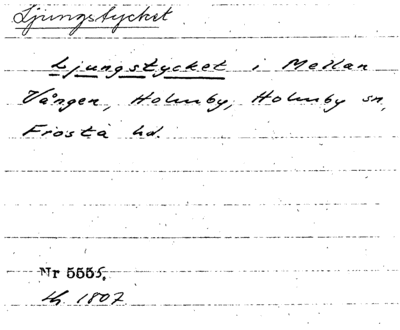 Ljungstycket
Ljungstycket i Mellan
Vången, Holmby, Holmby sn,
Frosta hd.
Nr 5555.
1807